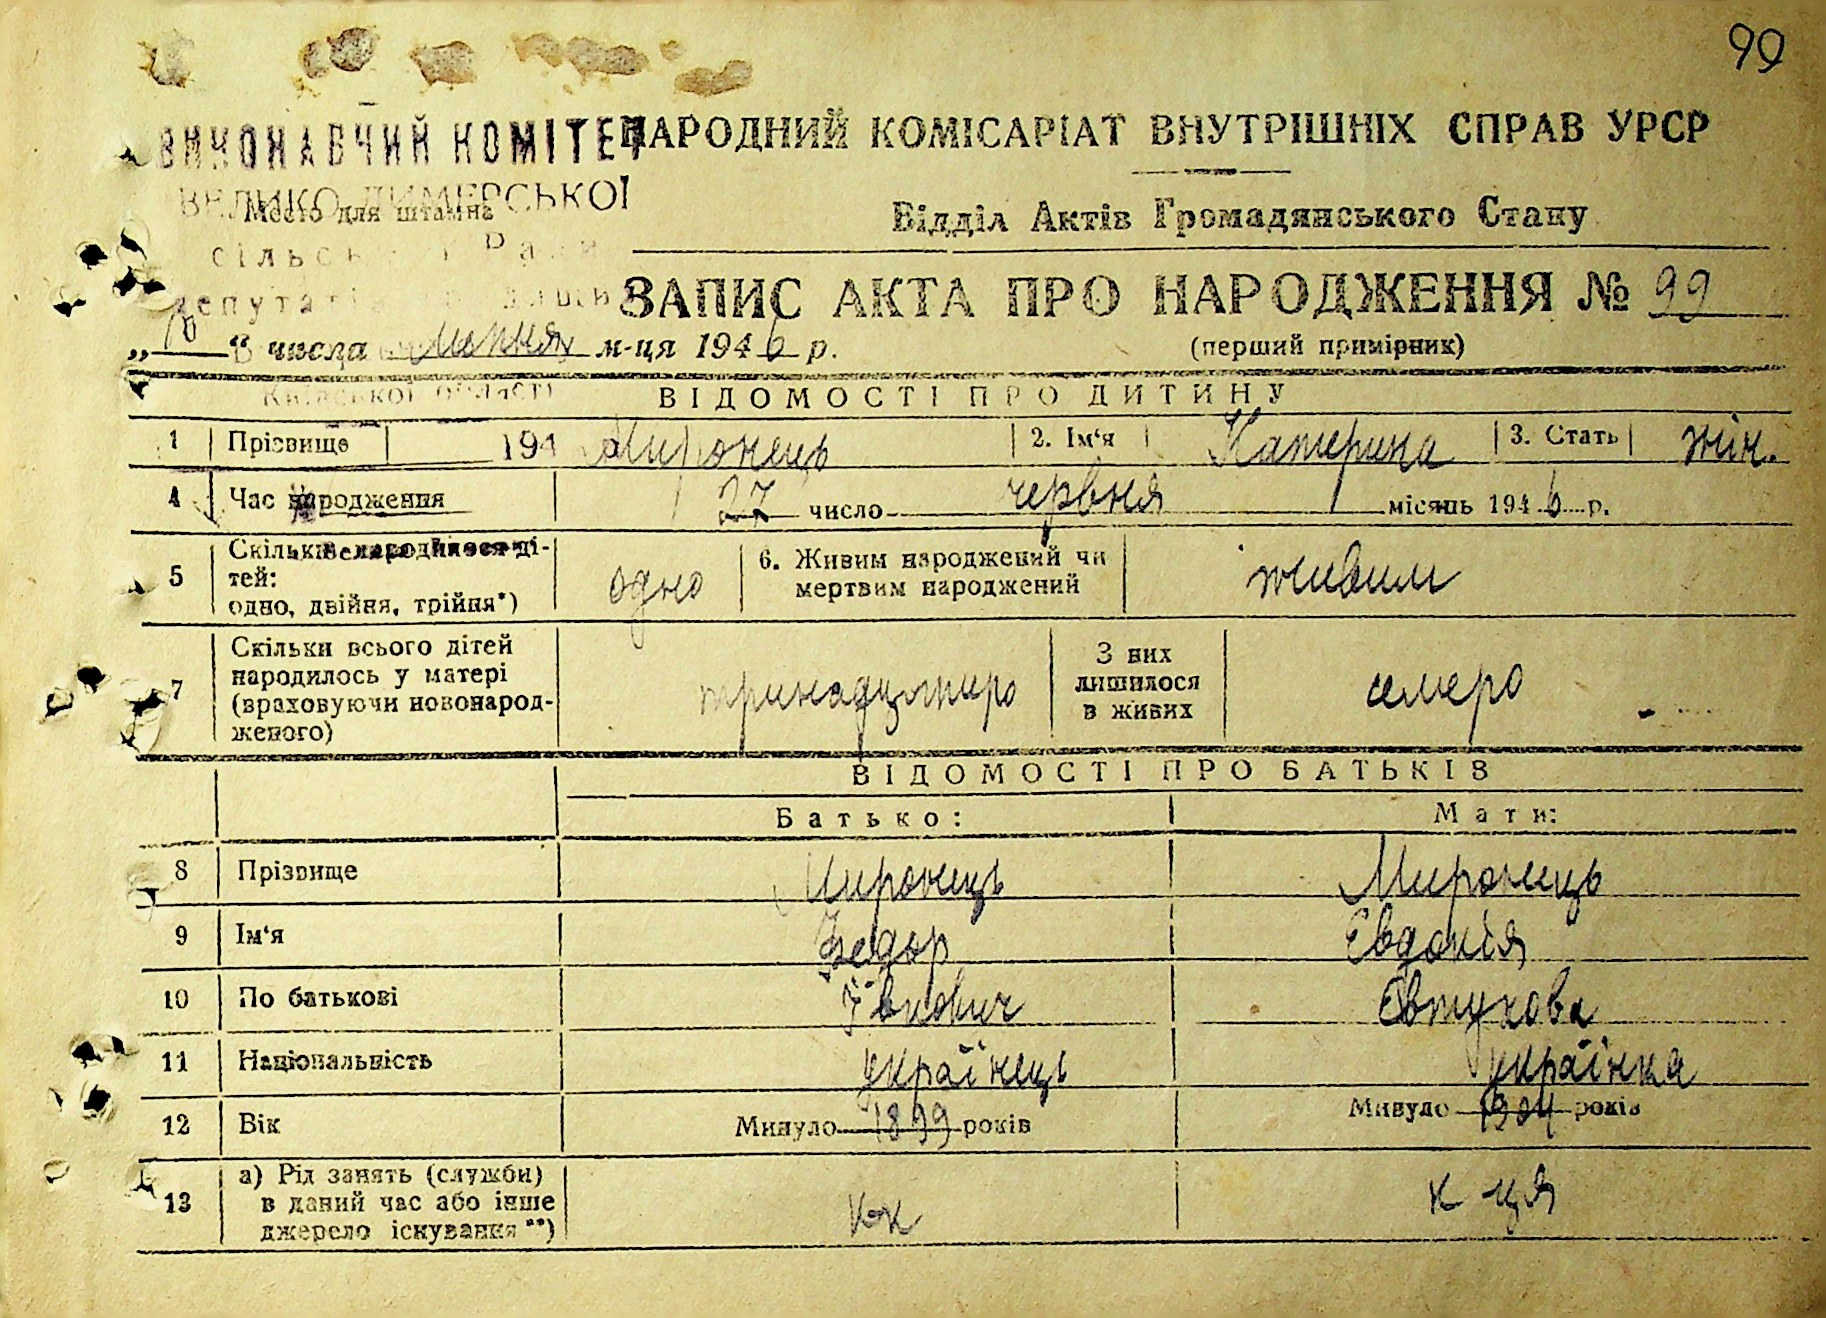 99
ВИКОНАВЧИЙ КОМІТЕТ
НАРОДНИЙ КОМІСАРІАТ ВНУТРІШНІХ СПРАВ УРСР
ВЕЛИКО-ДИМЕРСЬКОЇ
Місце для штампа
Відділ Актів Громадянського Стану
ЗАПИС АКТА ПРО НАРОДЖЕННЯ № 99
„10“ числа липня м-ця 1946 р.
(перший примірник)
Київської області
ВІДОМОСТІ ПРО ДИТИНУ
1 Прізвище 194 Миронець 2. Ім‘я Катерина 3. Стать жін.
4 Час народження 27 число червня місяць 1946 р.
5 Скільки народилося ді-
тей:
одно, двійня, трійня*) одно
6. Живим народжений чи
мертвим народжений живим
7 Скільки всього дітей
народилось у матері
(враховуючи новонарод-
женого) тринадцятиро
З них
лишилося
в живих семеро
ВІДОМОСТІ ПРО БАТЬКІВ
Батько: Мати:
8 Прізвище Миронець Миронець
9 Ім‘я Федор Євдокія
10 По батькові Євтухова
11 Національність українець українка
12 Вік Минуло 1899 років Минуло 1904 років
13 а) Рід занять (служби)
в даний час або інше
джерело існування**) к-к к-ця